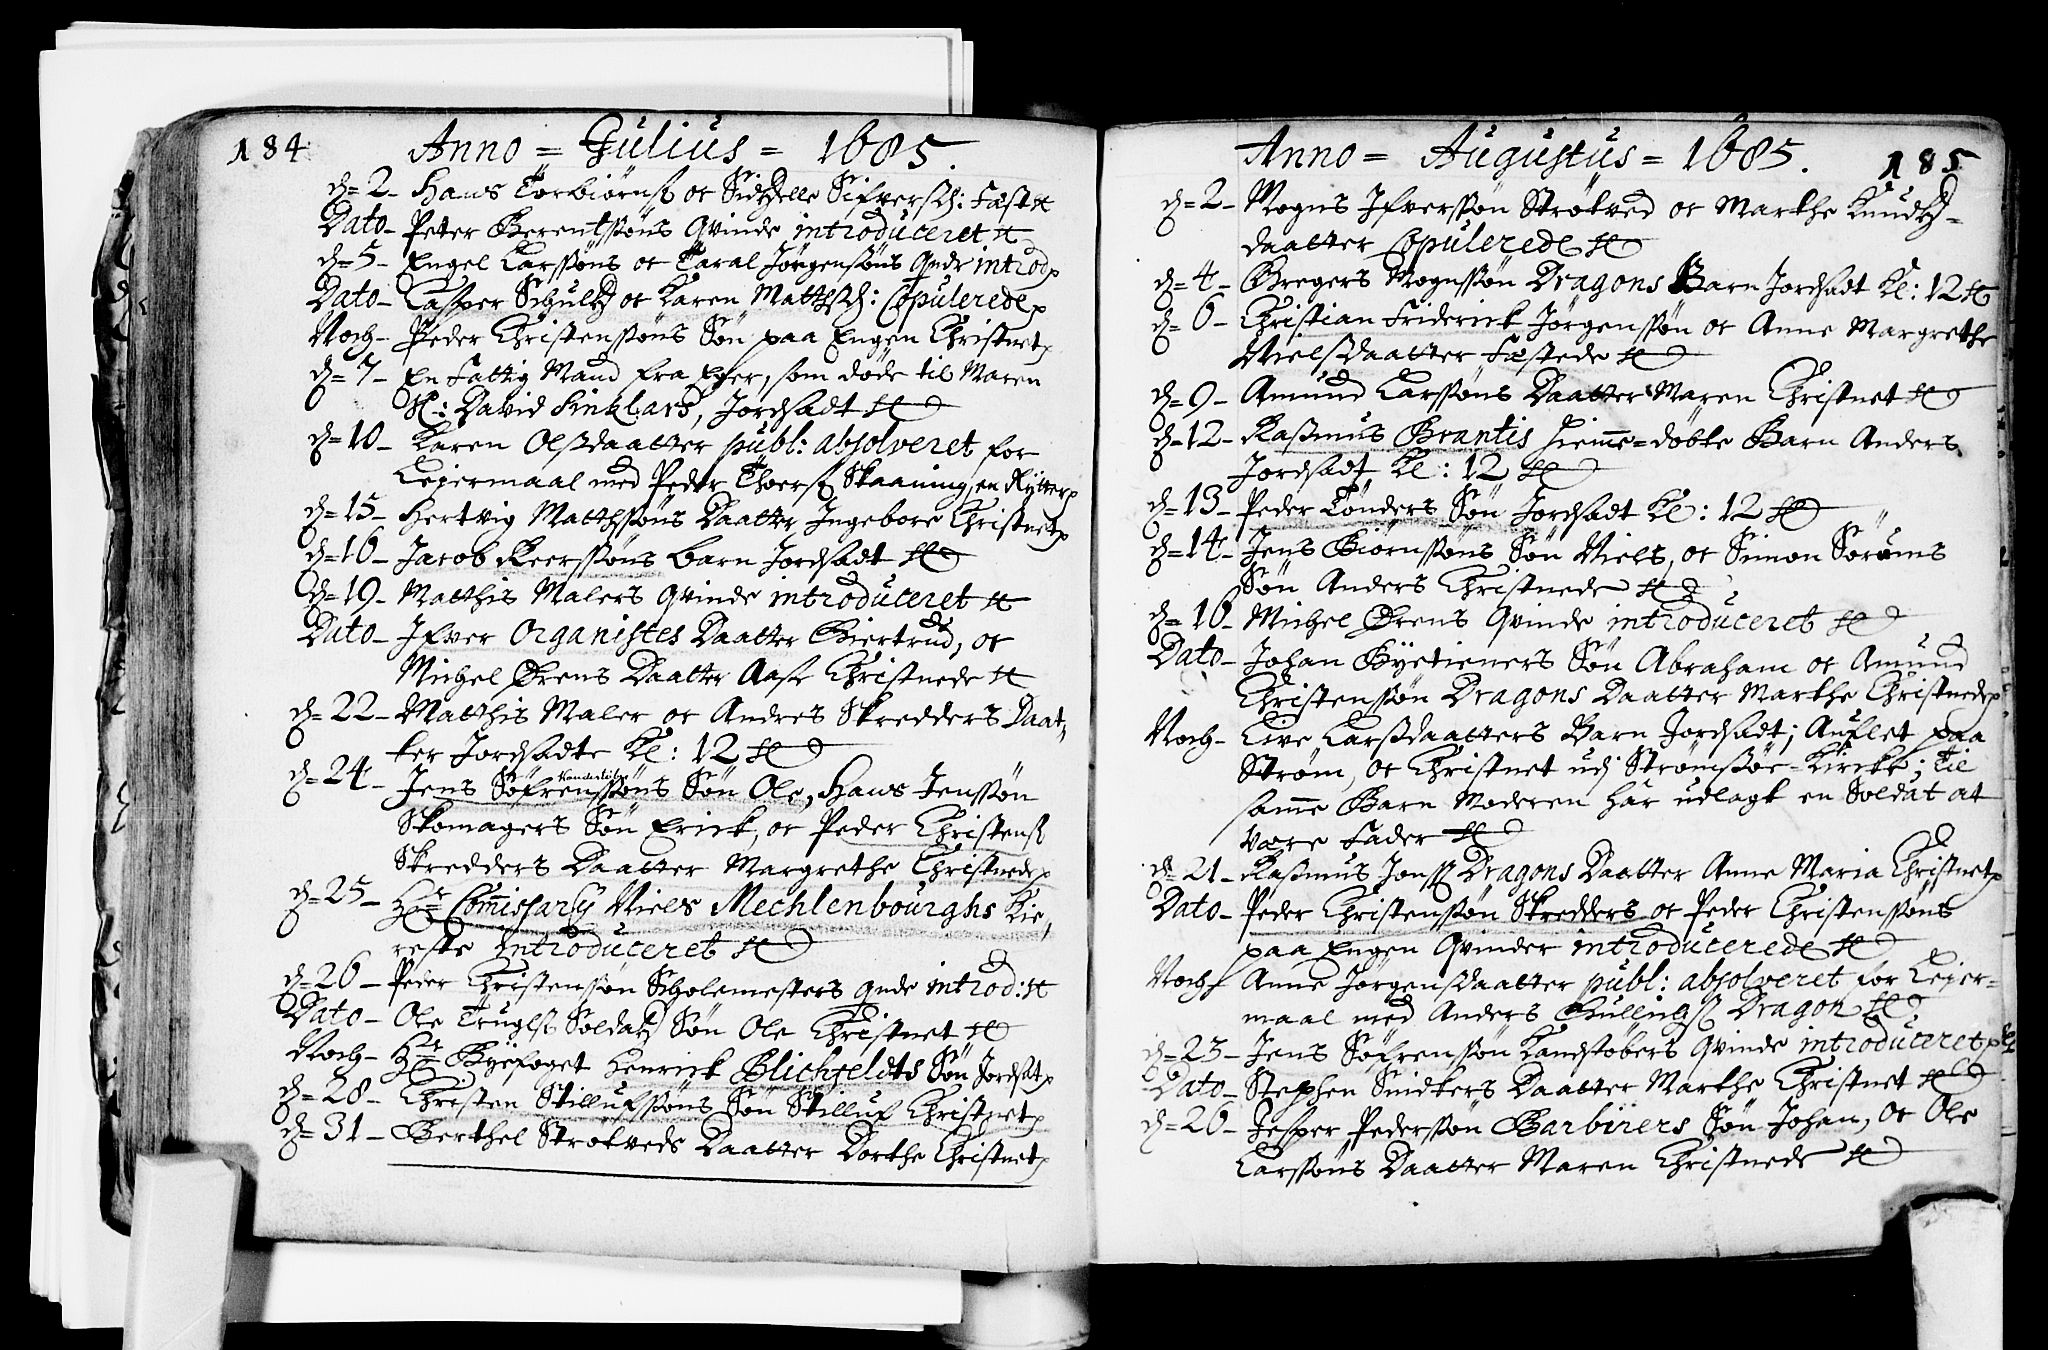 184 Anno = Julius = 1685.
d. 2 - Hans Torbiörnß oc Sidtzelle Sifversd: Fæst
Dato - Peter Berentssøns Qvinde introduceret
d. 5 - Engel Larssøns oc Taral Jørgenssøns Qndr introd
Dato - Casper Schultz oc Karen Matthsd: Copulerede
Noch - Peder Christenssøns Søn paa Engen Christnet
d. 7 - En Fattig Mand fra Eger, som døde til Maren
Sl: David Sinklars, Jordsadt
d. 10 - Karen Olsdaatter publ: absolveret, for
Leiermaal med Peder Thoerß Skaaning, en Rytter
d. 15 - Hertvig Matthssøns Daatter Ingebore Christnet
d. 16 - Jacob Reerssøns barn Jordsadt
d. 19 - Matthis Malers Qvinde introduceret
Dato - Ifver Organistes Daatter Giertrud, oc
Michel Ørens Daatter Aase Christnede
d. 22 - Matthis Maler oc Andres Skredders Daat,
ter Jordsadte Kl: 12
d. 24 - Jens Söfrenssøns Søn Ole, Hans Jenssøn
Skomagers Søn Erick, oc Peder Christenß
Skredders Daatter Margrethe Christnede
d. 25 - Hr Commissary Niels Mechlenbourghs Kie,
reste Introduceret
d. 26 - Peder Christenssøn Scholemesters qnde introd:
Dato - Ole Truglß Soldatz Søn Ole Christnet
Noch - Hr Byefoget Henrick Blichfeldts Søn Jordsat
d. 28 - Christen Stillufssøns Søn Stilluf Christnet
d. 31 - Berthel Strøtveds Daatter Dorthe Christnet
Anno = Augustus = 1685. 185
d. 2 - Mogns Ifverssøn Strøtved oc Marthe Knudtz-
daatter Copulerede
d. 4 - Gregers Mognssøn Dragons Barn Jordsadt Kl: 12
d. 6 - Christian Friderick Jörgenssøn oc Anne Margrethe
Nielsdaatter Fæstede
d. 9 - Amund Larssøns Daatter Maren Christnet
d. 12 - Rasmus Brantis Hiemme=døbte Barn Anders
Jordsadt Kl: 12
d. 13 - Peder Tönders Søn Jordsadt Kl: 12
d. 14 - Jens Biörnssøns Søn Niels, oc Simon Sørums
Søn Anders Christnede
d. 16 - Michel Ørens Qvinde introduceret
Dato - Johan Byetieners Søn Abraham oc Amund
Christenssøn Dragons Daatter Marthe Christnede
Noch - Live Larsdaatters Barn Jordsadt; Auflet paa
Strøm, oc Christnet udj Strømssøe-Kircke; Til
samme Barn Moderen har udlagt en Soldat at
være Fader
d. 21 - Rasmus Jonß Dragons Daatter Anne Maria Christnet
Dato - Peder Christenssøn Skredders oc Peder Christenssøns
paa Engen Qvinder introducerede
Noch Anne Jørgensdaatter publ: absolveret for Leier-
maal med Anders Gullichß Dragon
d. 23 - Jens Söfrenssøn Kandstöbers Qvinde introduceret
Dato - Stephen Snidkers Daatter Marthe Christnet
d. 26 - Jesper Pederssøn Barbirers Søn Johan, oc Ole
Larssøns Daatter Maren Christnede